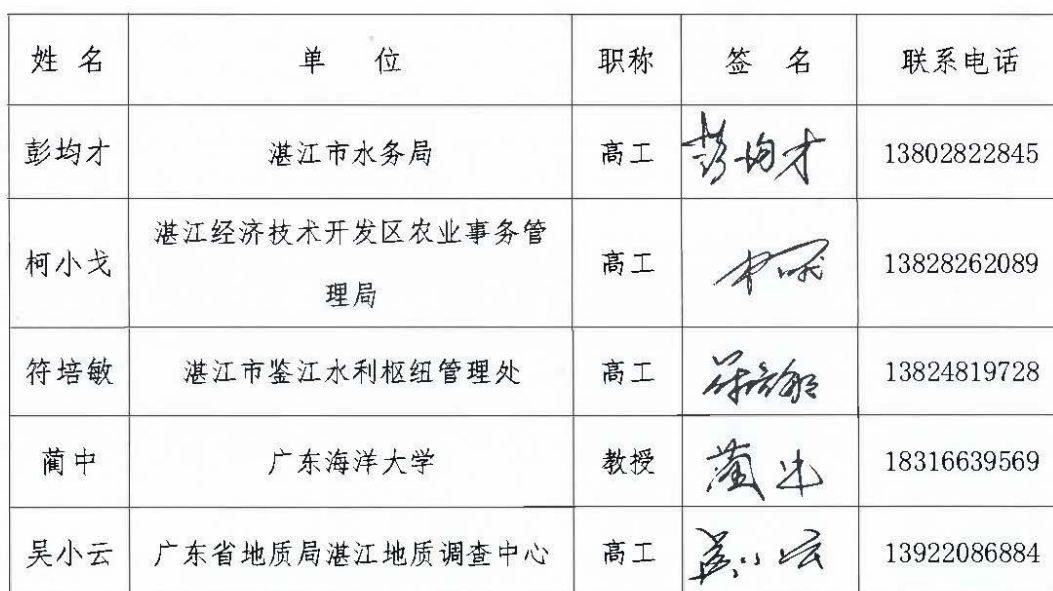 姓 名 单 位 职称 签 名 联系电话
彭均才 湛江市水务局 高工 彭均才 13802822845
湛江经济技术开发区农业事务管
柯小戈 高工 13828262089
理局
符培敏 湛江市鉴江水利枢纽管理处 高工 符培敏 13824819728
蔺中 广东海洋大学 教授 蔺中 18316639569
吴小云 广东省地质局湛江地质调查中心 高工 吴小云 13922086884